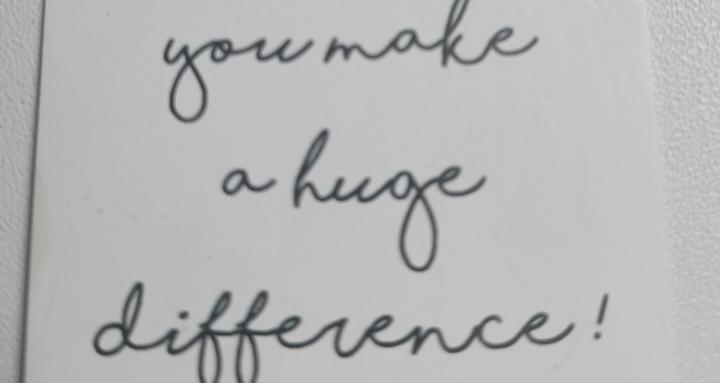 you make
a huge
difference!